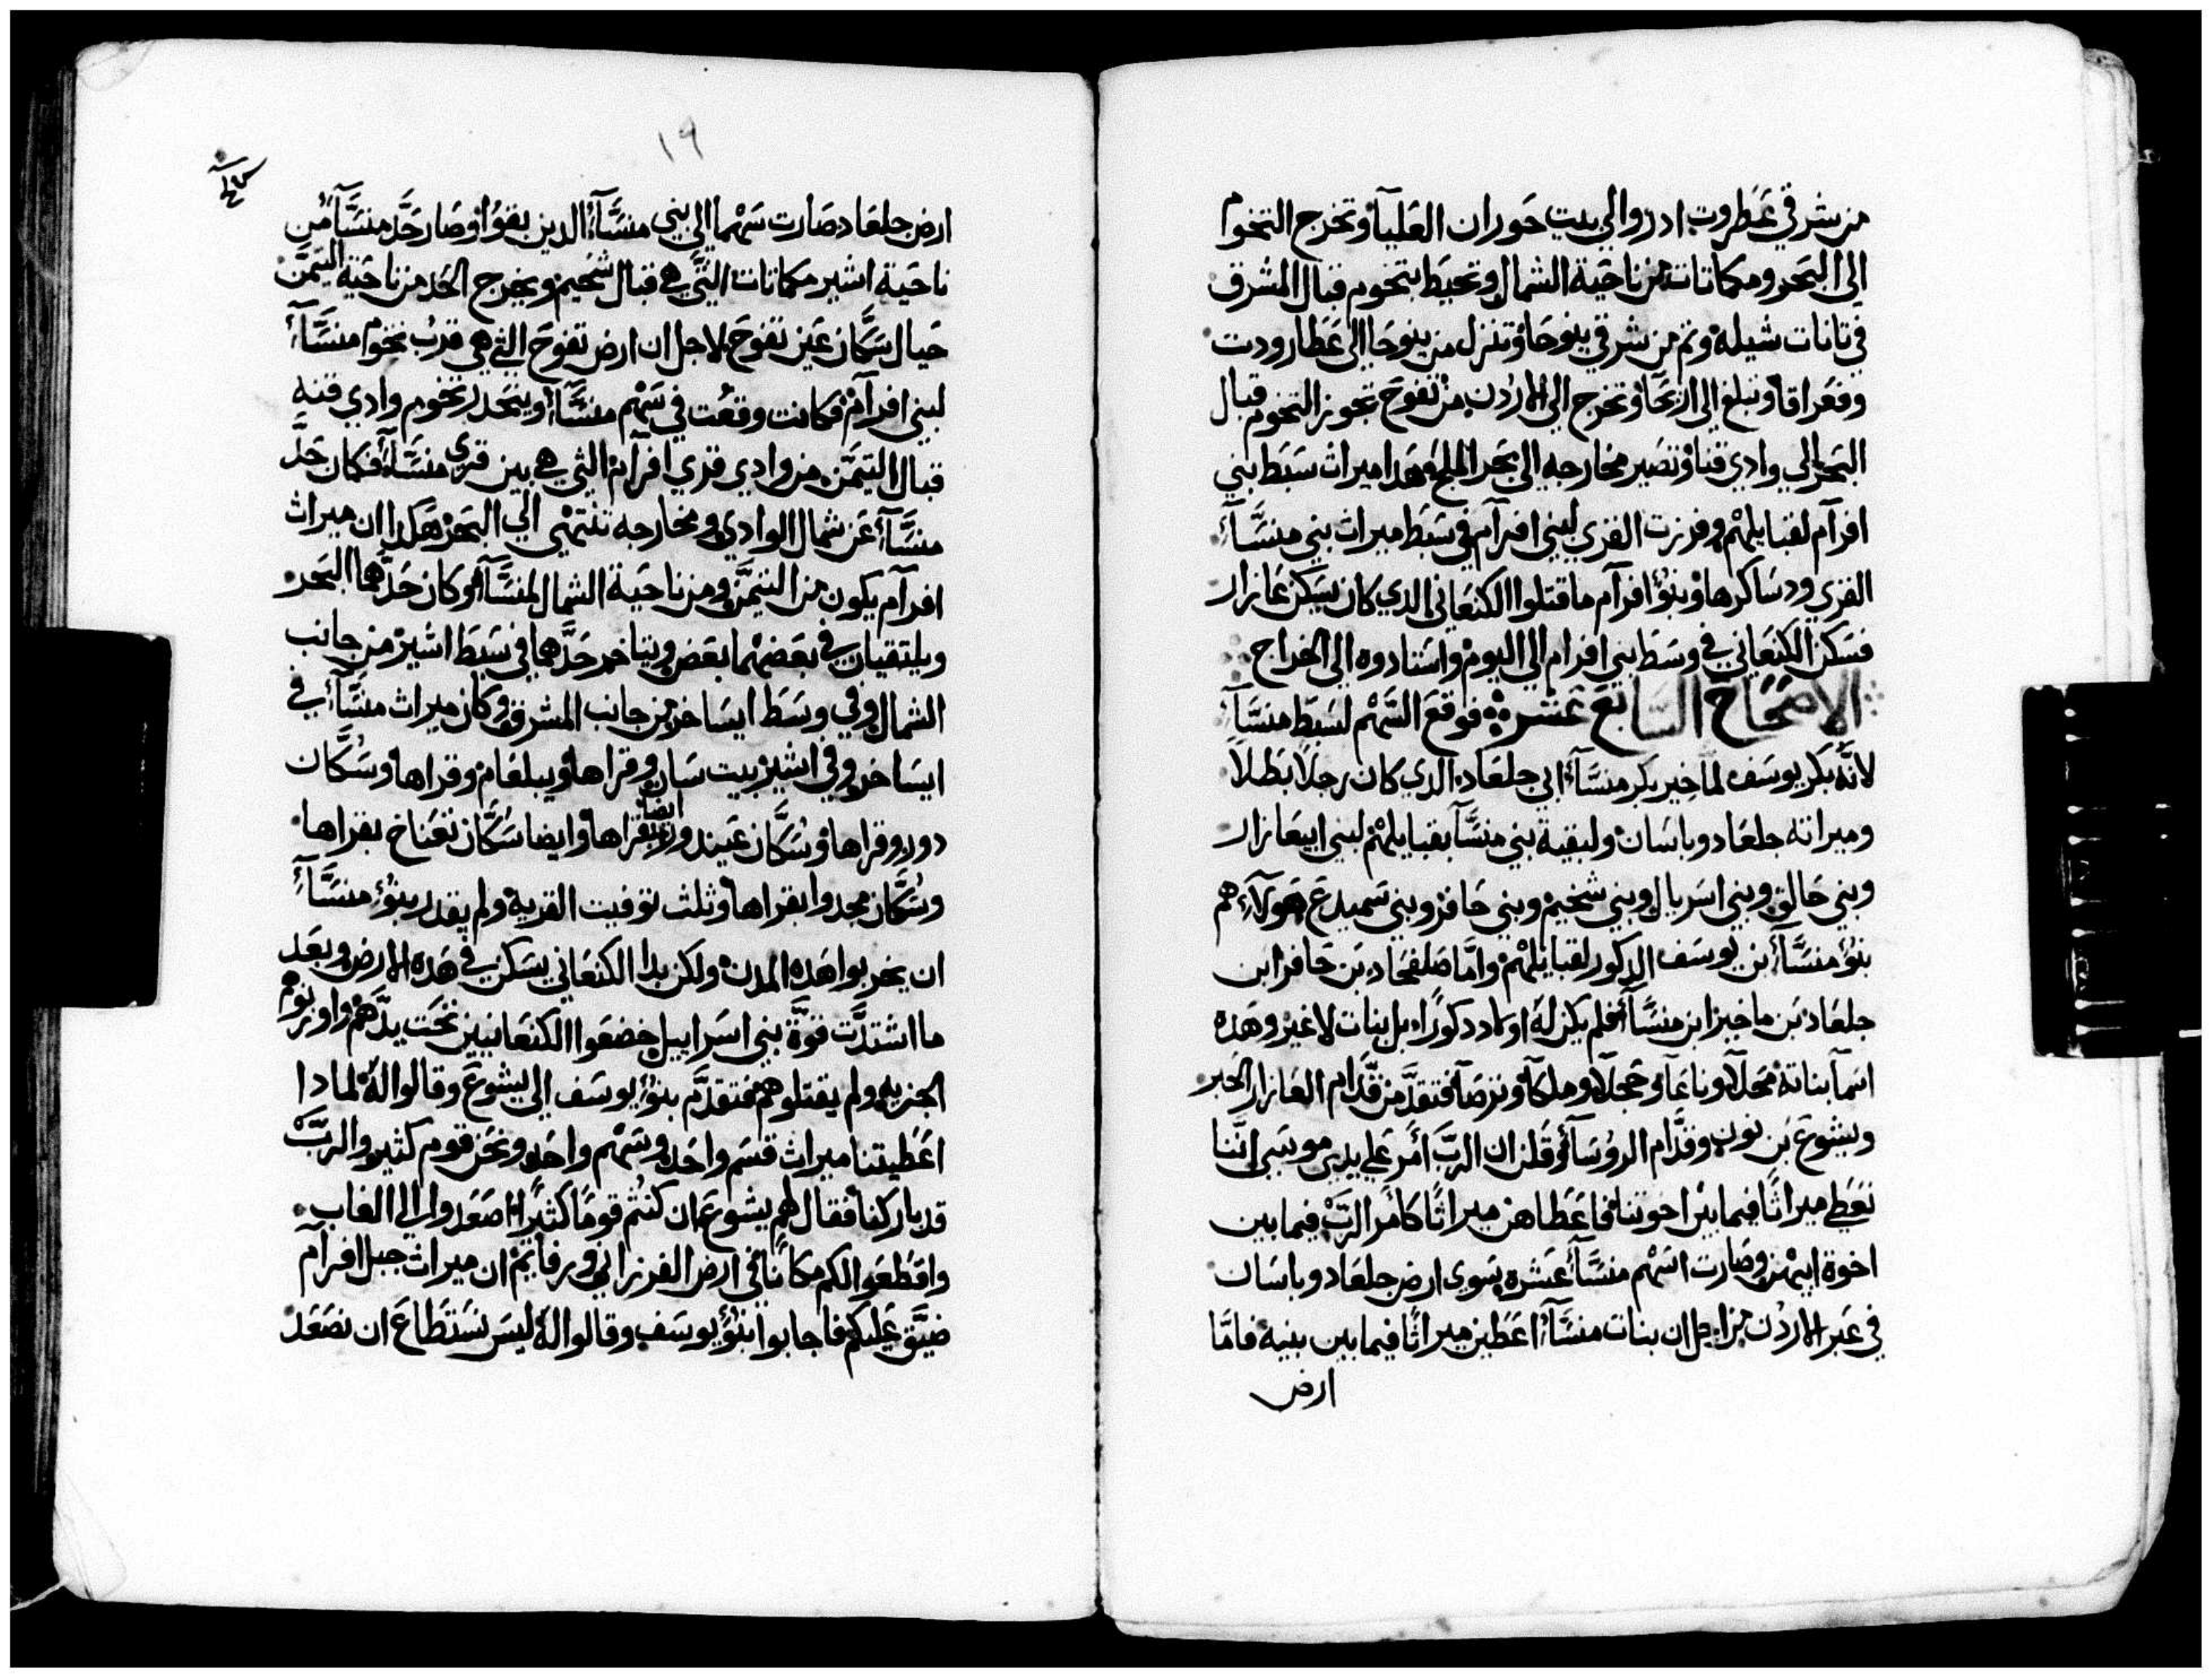 من شرقي عَطروت ادرو الي بيت حَوران العَليا وتخرج التخوم
الى البَحر ومكاتات من ناحَية الشمال وتحيَط بتخوم قبال المشرق
في تانات شيله وثم من شرقي ينوحَا وتنزل من ينوحَا الى عَطارودت
وفعَراقا وتبلغ الى اريحَا وتخرج الى الاردن من تفوحَ تجوز التخوم قبال
البَحر الي وادي قنا وتصَير مخارجه الى بحَر الملح هَدا ميرات سَبَط بني
افرآم لقبايلهْم وفرزت القري لبني افرآم في سَبَط ميرات بني منسَّآ
القري ودسَاكرها وبنؤ افرآم ما قتلوا الكنعَاني الدي كان يسَكن عَازار
فسَكن الكنعَاني في وسَط بني افرام الى اليوم واسَتادوه الى الخراج
الاصَحَاحَ السَابعَ عَشر فوقعَ السَهْم لسَبَط منسَّآ
لانَّه بكر يوسَف لماخير بكر منسَّآ ابي جلعَاد الدي كان رجلاً بَطلاً
وميراته جلعَاد وباسَان ولبقية بني منسَّآ بقبايلهْم لبني ابيعَازار
وبني حَالق وبني اسَريال وبني شخيم وبني حَافر وبني سَميدعَ هَولآء هم
بنؤ منسَّآ بن يوسَف الدكور لقبايلهْم وامَّا صَلفحَاد بَن حَافر ابن
جلعَاد بَن ماخير ابن منسَّآ فلم يكن لهَ اولاد دكورًا بل بنات لا غير وهَده
اسَمآ بناتهَ مَحَلآ وناعَمآ وحَجلآ وملكآ وترصَآ فتقدَّمن قدَّام العَازار الحَبر
ويشوعَ بَن نون وقدَّام الروسَآ وقَلن ان الربَّ أمَر عَلي يدي موسَى انَّنا
نعَطي ميراثًا فيما بَين اخوتنا فاعَطاهن ميراثًا كامَر الربَّ فيما بين
اخوة ابيهْن وصَارت اسَهْم منسَّآ عَشره سَوى ارض جلعَاد وباسَان
في عَبر الاردُن من اجل ان بنات منسَّآ اعَطين ميراثًا فيما بين بنيه فامَّا
ارض
١٩
ارض جلعَاد صَارت سَهْما الى بني منسَّآ الدين بقوُا وصَار حَدَّ منسَّآ من
ناحَية اشير مكاتات التَّي هَي قبال شخيم ويخرج الحَد من ناحَية التَيمَّن
حَيال سَكَّان عَين تفوحَ لاجل ان ارض تفوحَ التي هَي قربُ تخوم منسَّآ
لبني افرآم فكانت وقعُت في سَهْم منسَّآ وينحَدر تخوم وادي قنه
قبال التيمَّن من وادي قري افرآم التي هَي بين قرى منسَّآ فكان حَدَّ
منسَّآ عَن شمال الوادي ومخارجه تنتهْي الي البَحر هَكدا ان ميراث
افرآم يكون من التيمَّن ومن ناحَية الشمال لمنسَّآ وكان حَدَّهما البَحر
ويلتقيان في بعَضهْما بعَض ويتاخم حَدَّهما في سَبَط اشير من جانب
الشمال وفي وسَط ايسَاخر من جانب المشرق وكان ميراث منسَّآ في
ايسَاخر وفي اشير بيت سَان وقراها ويبلعَام وقراها وسَكَّان
دور وقراها وسُكَّان عَيند ور ايضا بقراها وايضا سَكَّان تعَناخ بقراها
وسَكَّان مجدوا بقراها وثلث توفيت القريه ولم يقدر بنؤ منسَّآ
ان يخربوا هَده المدن ولكن بدا الكنعَاني يسَكن في هَده الارض وبعَد
ما اشتدَّت قوَّة بني اسَراييل خضعَوا الكنعَانيين تحَت يدَّهَم واوزنوهم
الجزيه ولم يقتلوهَم فتقدَّم بنؤ يوسَف الى يشوعَ وقالوا لهُ لمادا
اعَطيتنا ميراث قسَم واحَد وسَهْم واحَد ونحَن قوم كثير والربَّ
قد باركنا فقال لهم يشوعَ ان كنتُم قومًا كثيرًا اصَعَدوا الى الغاب
واقطعَوا لكم مكانًا في ارض الفرزاني ورفايم ان ميراث جبل افرآم
ضيَّق عَليكم فاجابوا بنؤ يوسَف وقالوا لهُ ليسَ نسَتطاعَ ان نصَعَد